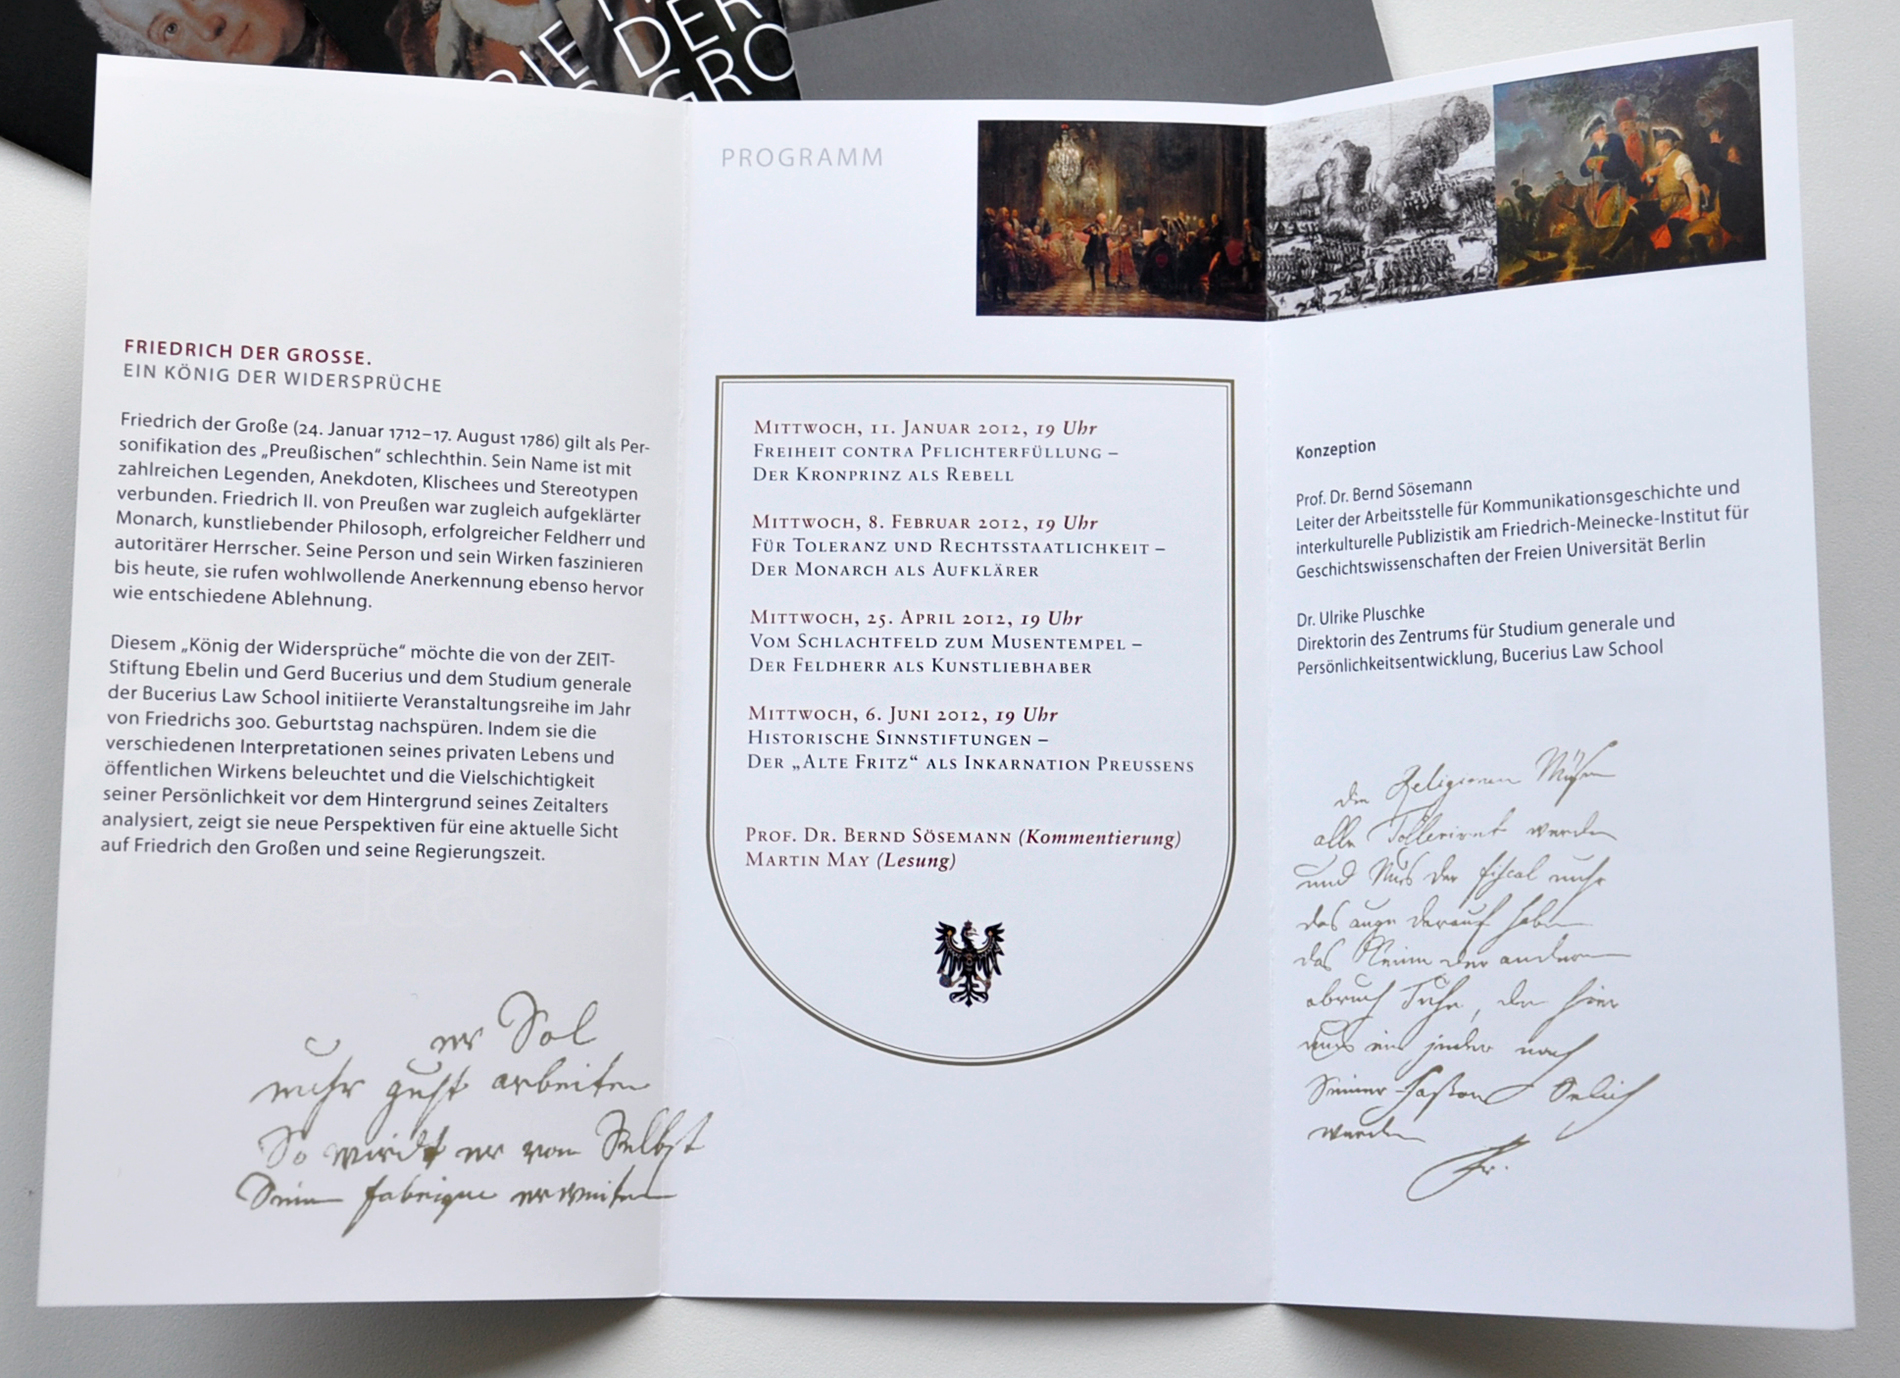 RIE
DER
GRO
FRIEDRICH DER GROSSE.
EIN KÖNIG DER WIDERSPRÜCHE
Friedrich der Große (24. Januar 1712–17. August 1786) gilt als Per-
sonifikation des „Preußischen“ schlechthin. Sein Name ist mit
zahlreichen Legenden, Anekdoten, Klischees und Stereotypen
verbunden. Friedrich II. von Preußen war zugleich aufgeklärter
Monarch, kunstliebender Philosoph, erfolgreicher Feldherr und
autoritärer Herrscher. Seine Person und sein Wirken faszinieren
bis heute, sie rufen wohlwollende Anerkennung ebenso hervor
wie entschiedene Ablehnung.
Diesem „König der Widersprüche“ möchte die von der ZEIT-
Stiftung Ebelin und Gerd Bucerius und dem Studium generale
der Bucerius Law School initiierte Veranstaltungsreihe im Jahr
von Friedrichs 300. Geburtstag nachspüren. Indem sie die
verschiedenen Interpretationen seines privaten Lebens und
öffentlichen Wirkens beleuchtet und die Vielschichtigkeit
seiner Persönlichkeit vor dem Hintergrund seines Zeitalters
analysiert, zeigt sie neue Perspektiven für eine aktuelle Sicht
auf Friedrich den Großen und seine Regierungszeit.
er Sol
mehr guht arbeiten
So wirdt er von Selbst
Seine fabrique erweitern
PROGRAMM
Mittwoch, 11. Januar 2012, 19 Uhr
Freiheit contra Pflichterfüllung –
Der Kronprinz als Rebell
Mittwoch, 8. Februar 2012, 19 Uhr
Für Toleranz und Rechtsstaatlichkeit –
Der Monarch als Aufklärer
Mittwoch, 25. April 2012, 19 Uhr
Vom Schlachtfeld zum Musentempel –
Der Feldherr als Kunstliebhaber
Mittwoch, 6. Juni 2012, 19 Uhr
Historische Sinnstiftungen –
Der „Alte Fritz“ als Inkarnation Preussens
Prof. Dr. Bernd Sösemann (Kommentierung)
Martin May (Lesung)
Konzeption
Prof. Dr. Bernd Sösemann
Leiter der Arbeitsstelle für Kommunikationsgeschichte und
interkulturelle Publizistik am Friedrich-Meinecke-Institut für
Geschichtswissenschaften der Freien Universität Berlin
Dr. Ulrike Pluschke
Direktorin des Zentrums für Studium generale und
Persönlichkeitsentwicklung, Bucerius Law School
die Religionen Müsen
alle Tolleriret werden
und Mus der fiscal nuhr
das auge darauf haben
das Keine der anderen
abruch Tuhe, den hier
mus ein jeder nach
Seiner Fasson Selich
werden
Fr.